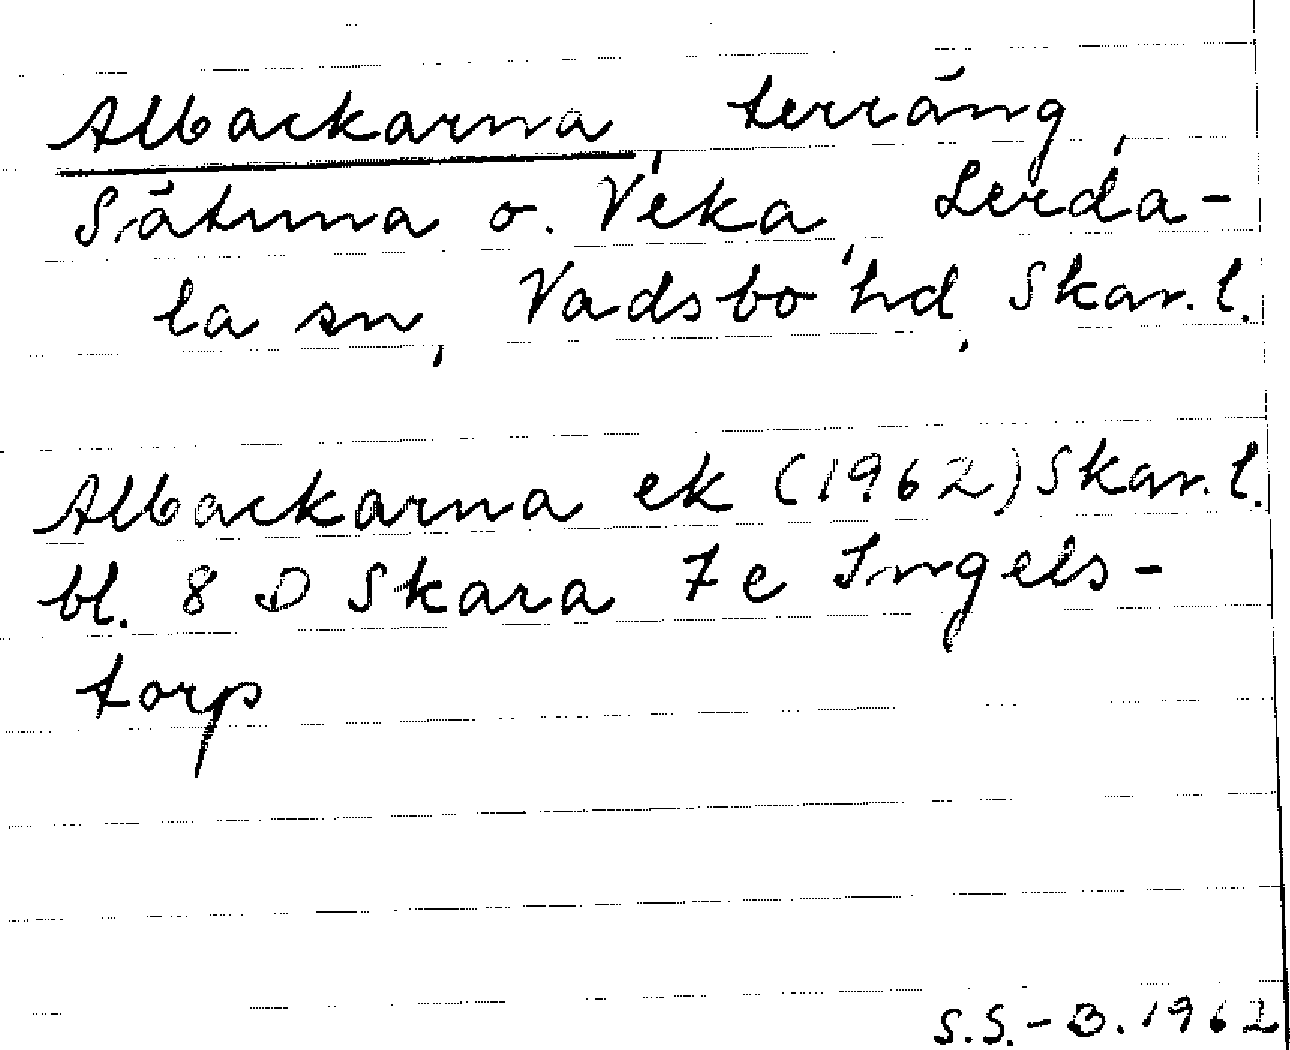 Albackarna, terräng,
Sätuna o. Veka, Lerda-
la sn, Vadsbo hd, Skar. l.
Albackarna ek (1962) Skar. l.
bl. 8 D Skara 7 e Ingels-
torp
S.S.-B. 1962